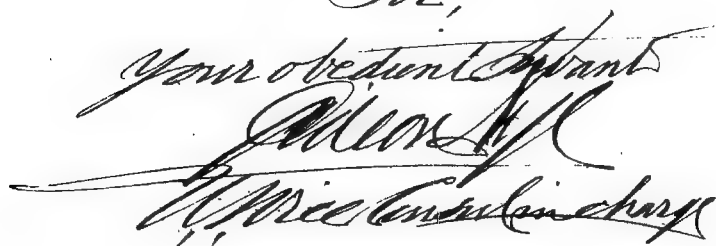 Sir,
Your obedient Servant
Gideon
U.S. Vice Consul in charge